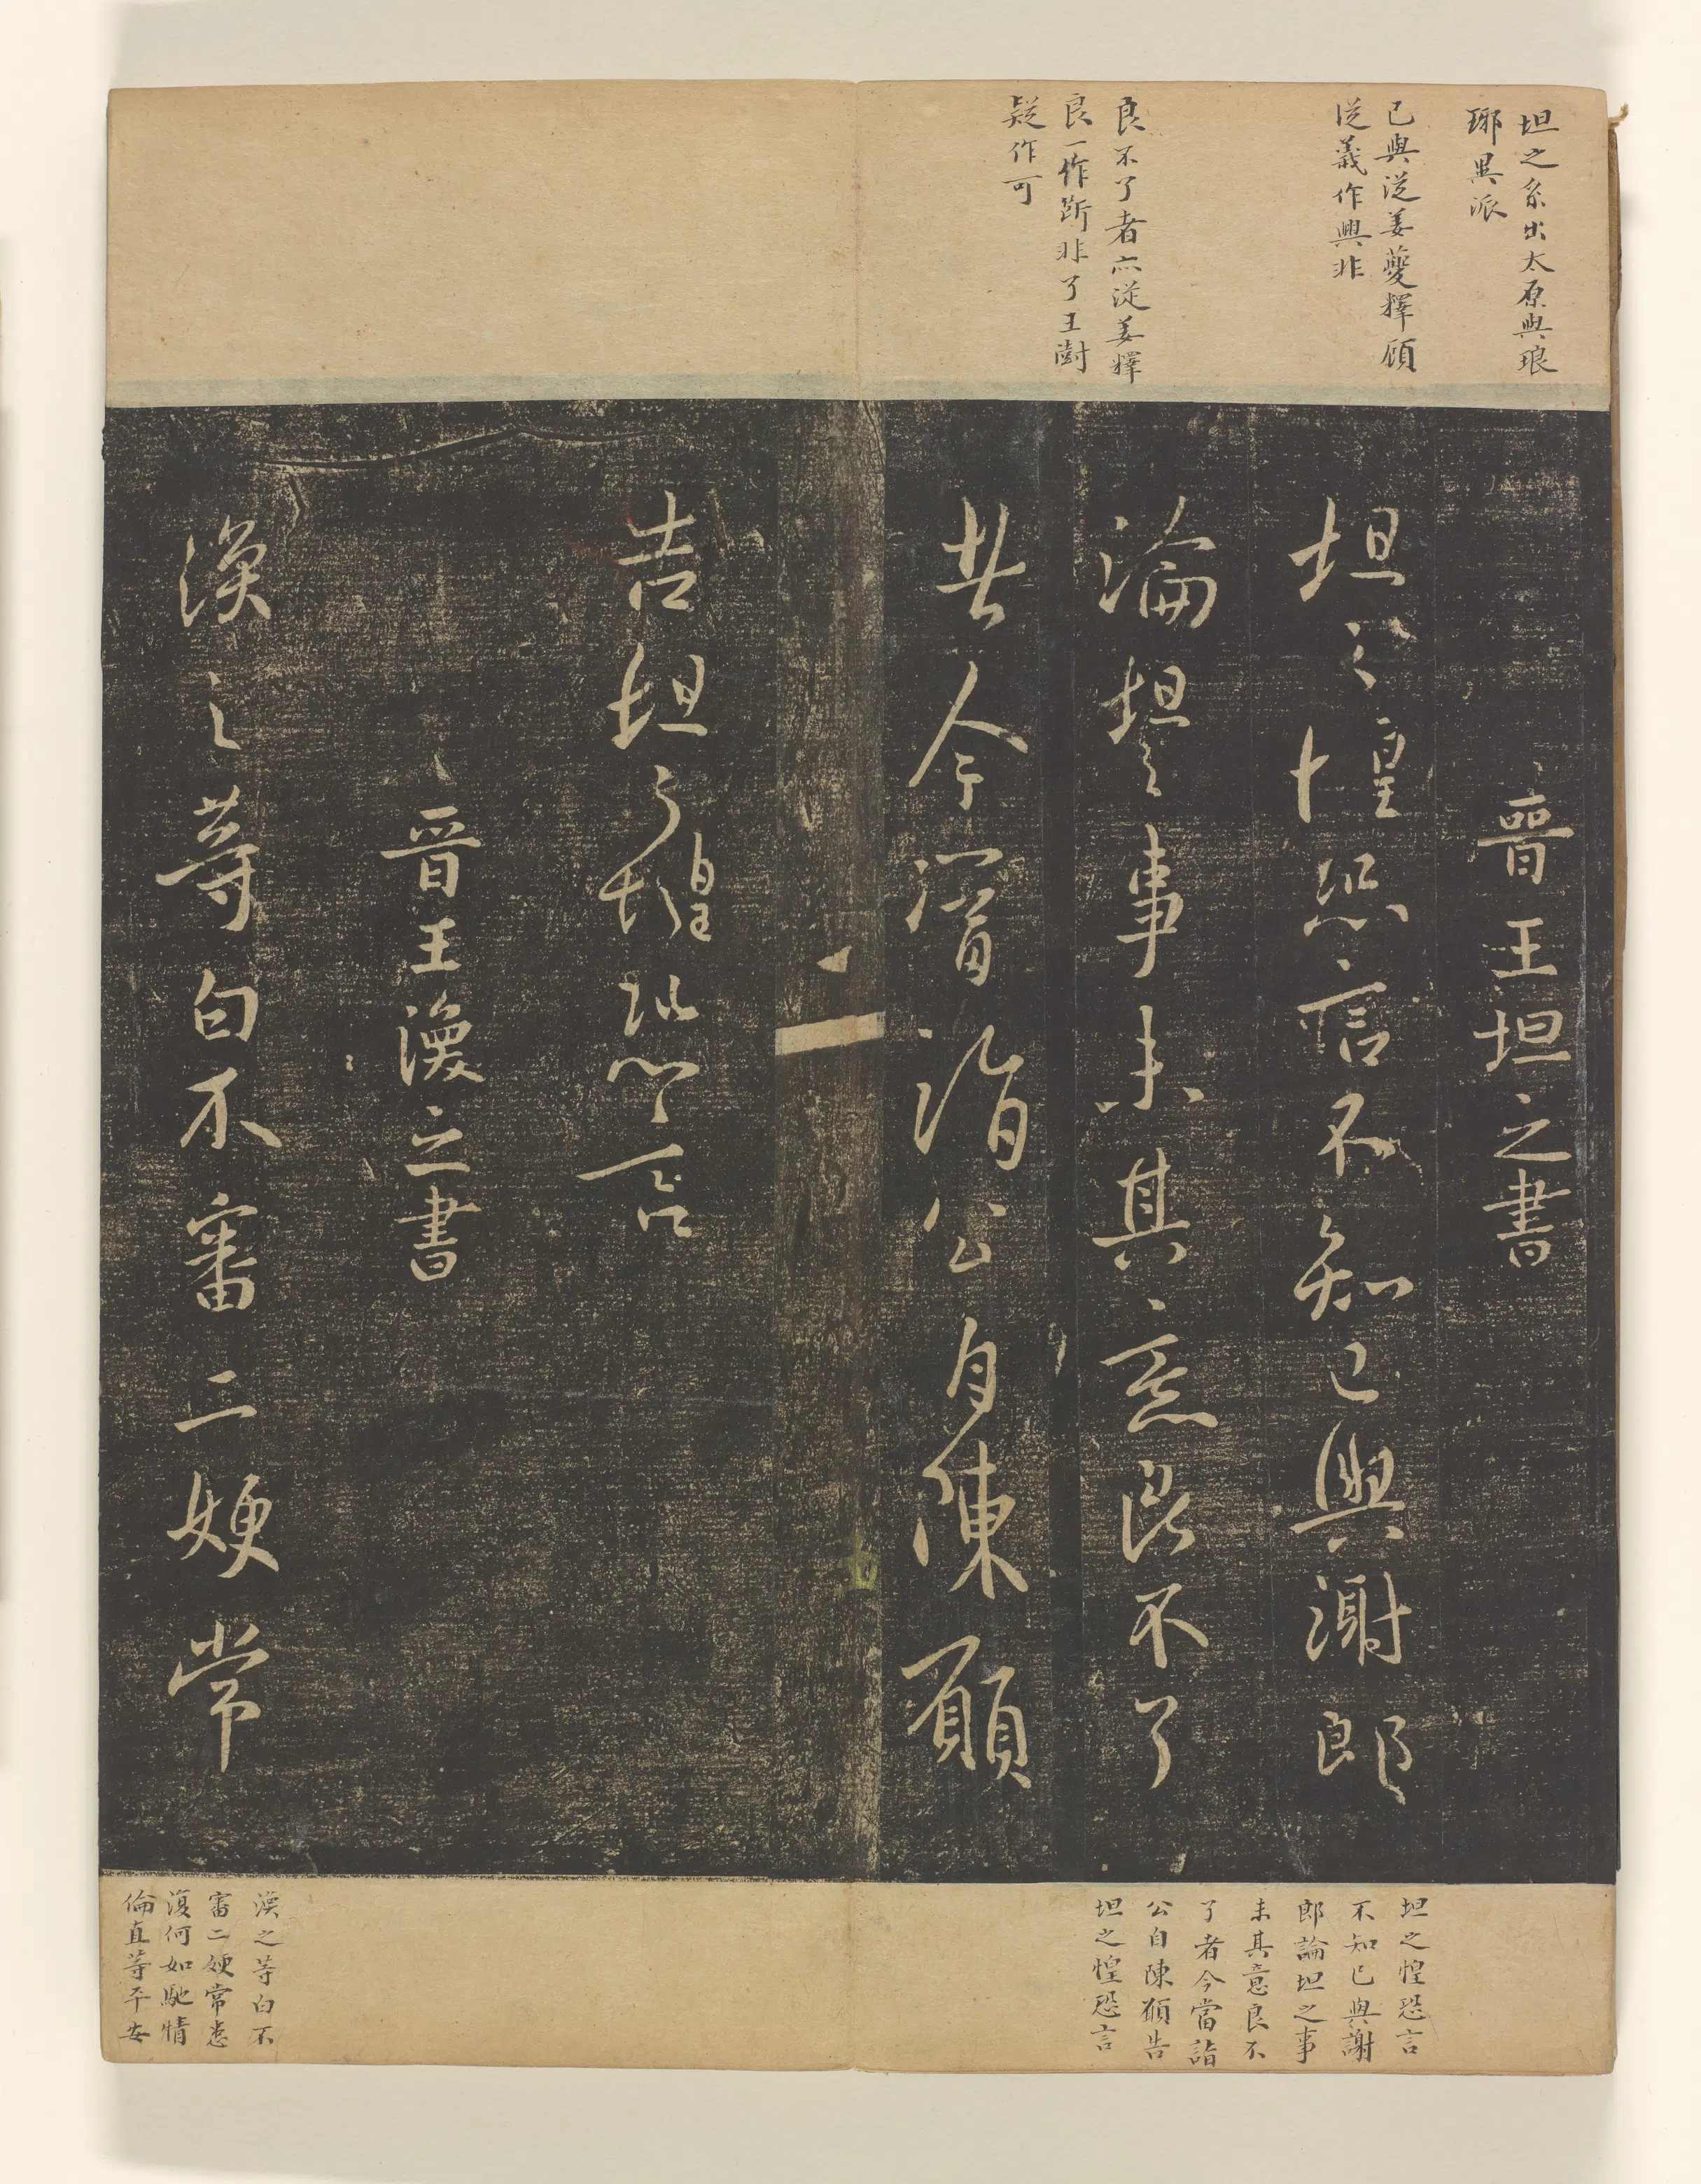 坦之系出太原與琅
琊異派
已與從姜夔釋顧
從義作興非
良不了者亦從姜釋
良一作斷非了王澍
疑作可
晉王坦之書
坦之惶恐言不知已與謝郎
論坦之事未其意良不了
者今當詣公自陳願
告坦之惶恐言
晉王渙之書
渙之等白不審二嫂常
坦之惶恐言
不知已與謝
郎論坦之事
未其意良不
了者今當詣
公自陳願告
坦之惶恐言
渙之等白不
審二嫂常患
復何如馳情
倫直等平安